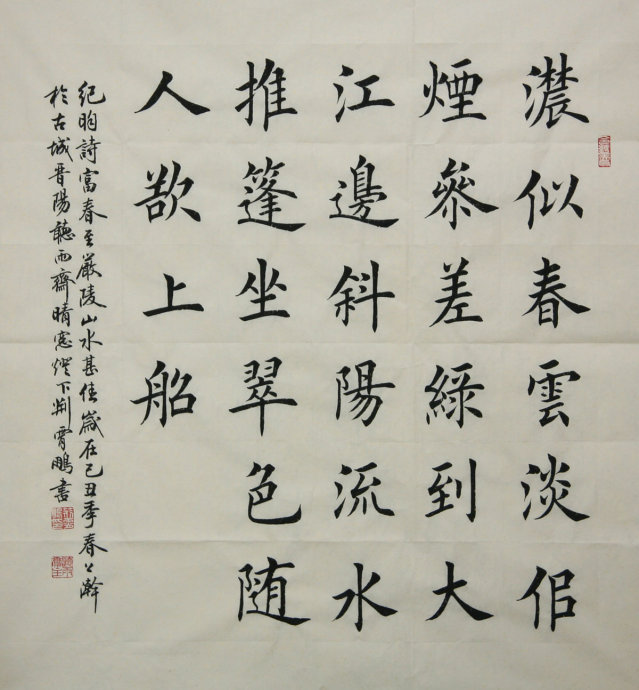 濃似春雲淡佀
煙參差綠到大
江邊斜陽流水
推篷坐翠色随
人欲上船
紀昀詩富春至嚴陵山水甚佳歲在己丑季春上澣
於古城晋陽聽雨齋晴窓燈下荆霄鵬書